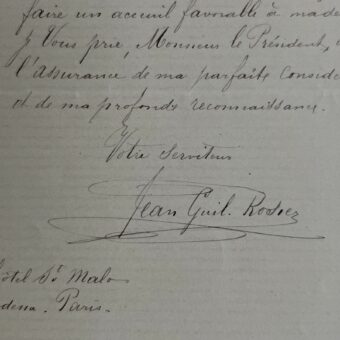 faire un acceuil favorable à ma de
Vous prie, Monsieur le Président,
l'assurance de ma parfaite Conside
et de ma profonde reconnaissance.
Votre Serviteur
Jean Guil. Rosiez
Hôtel St Malo
Paris.